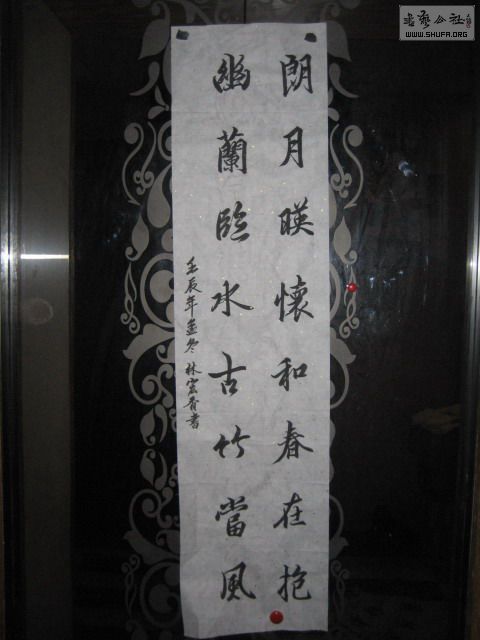 朗月暎懷和春在抱
幽蘭臨水古竹當風
壬辰年孟冬 林宏青書
書藝公社
WWW.SHUFA.ORG